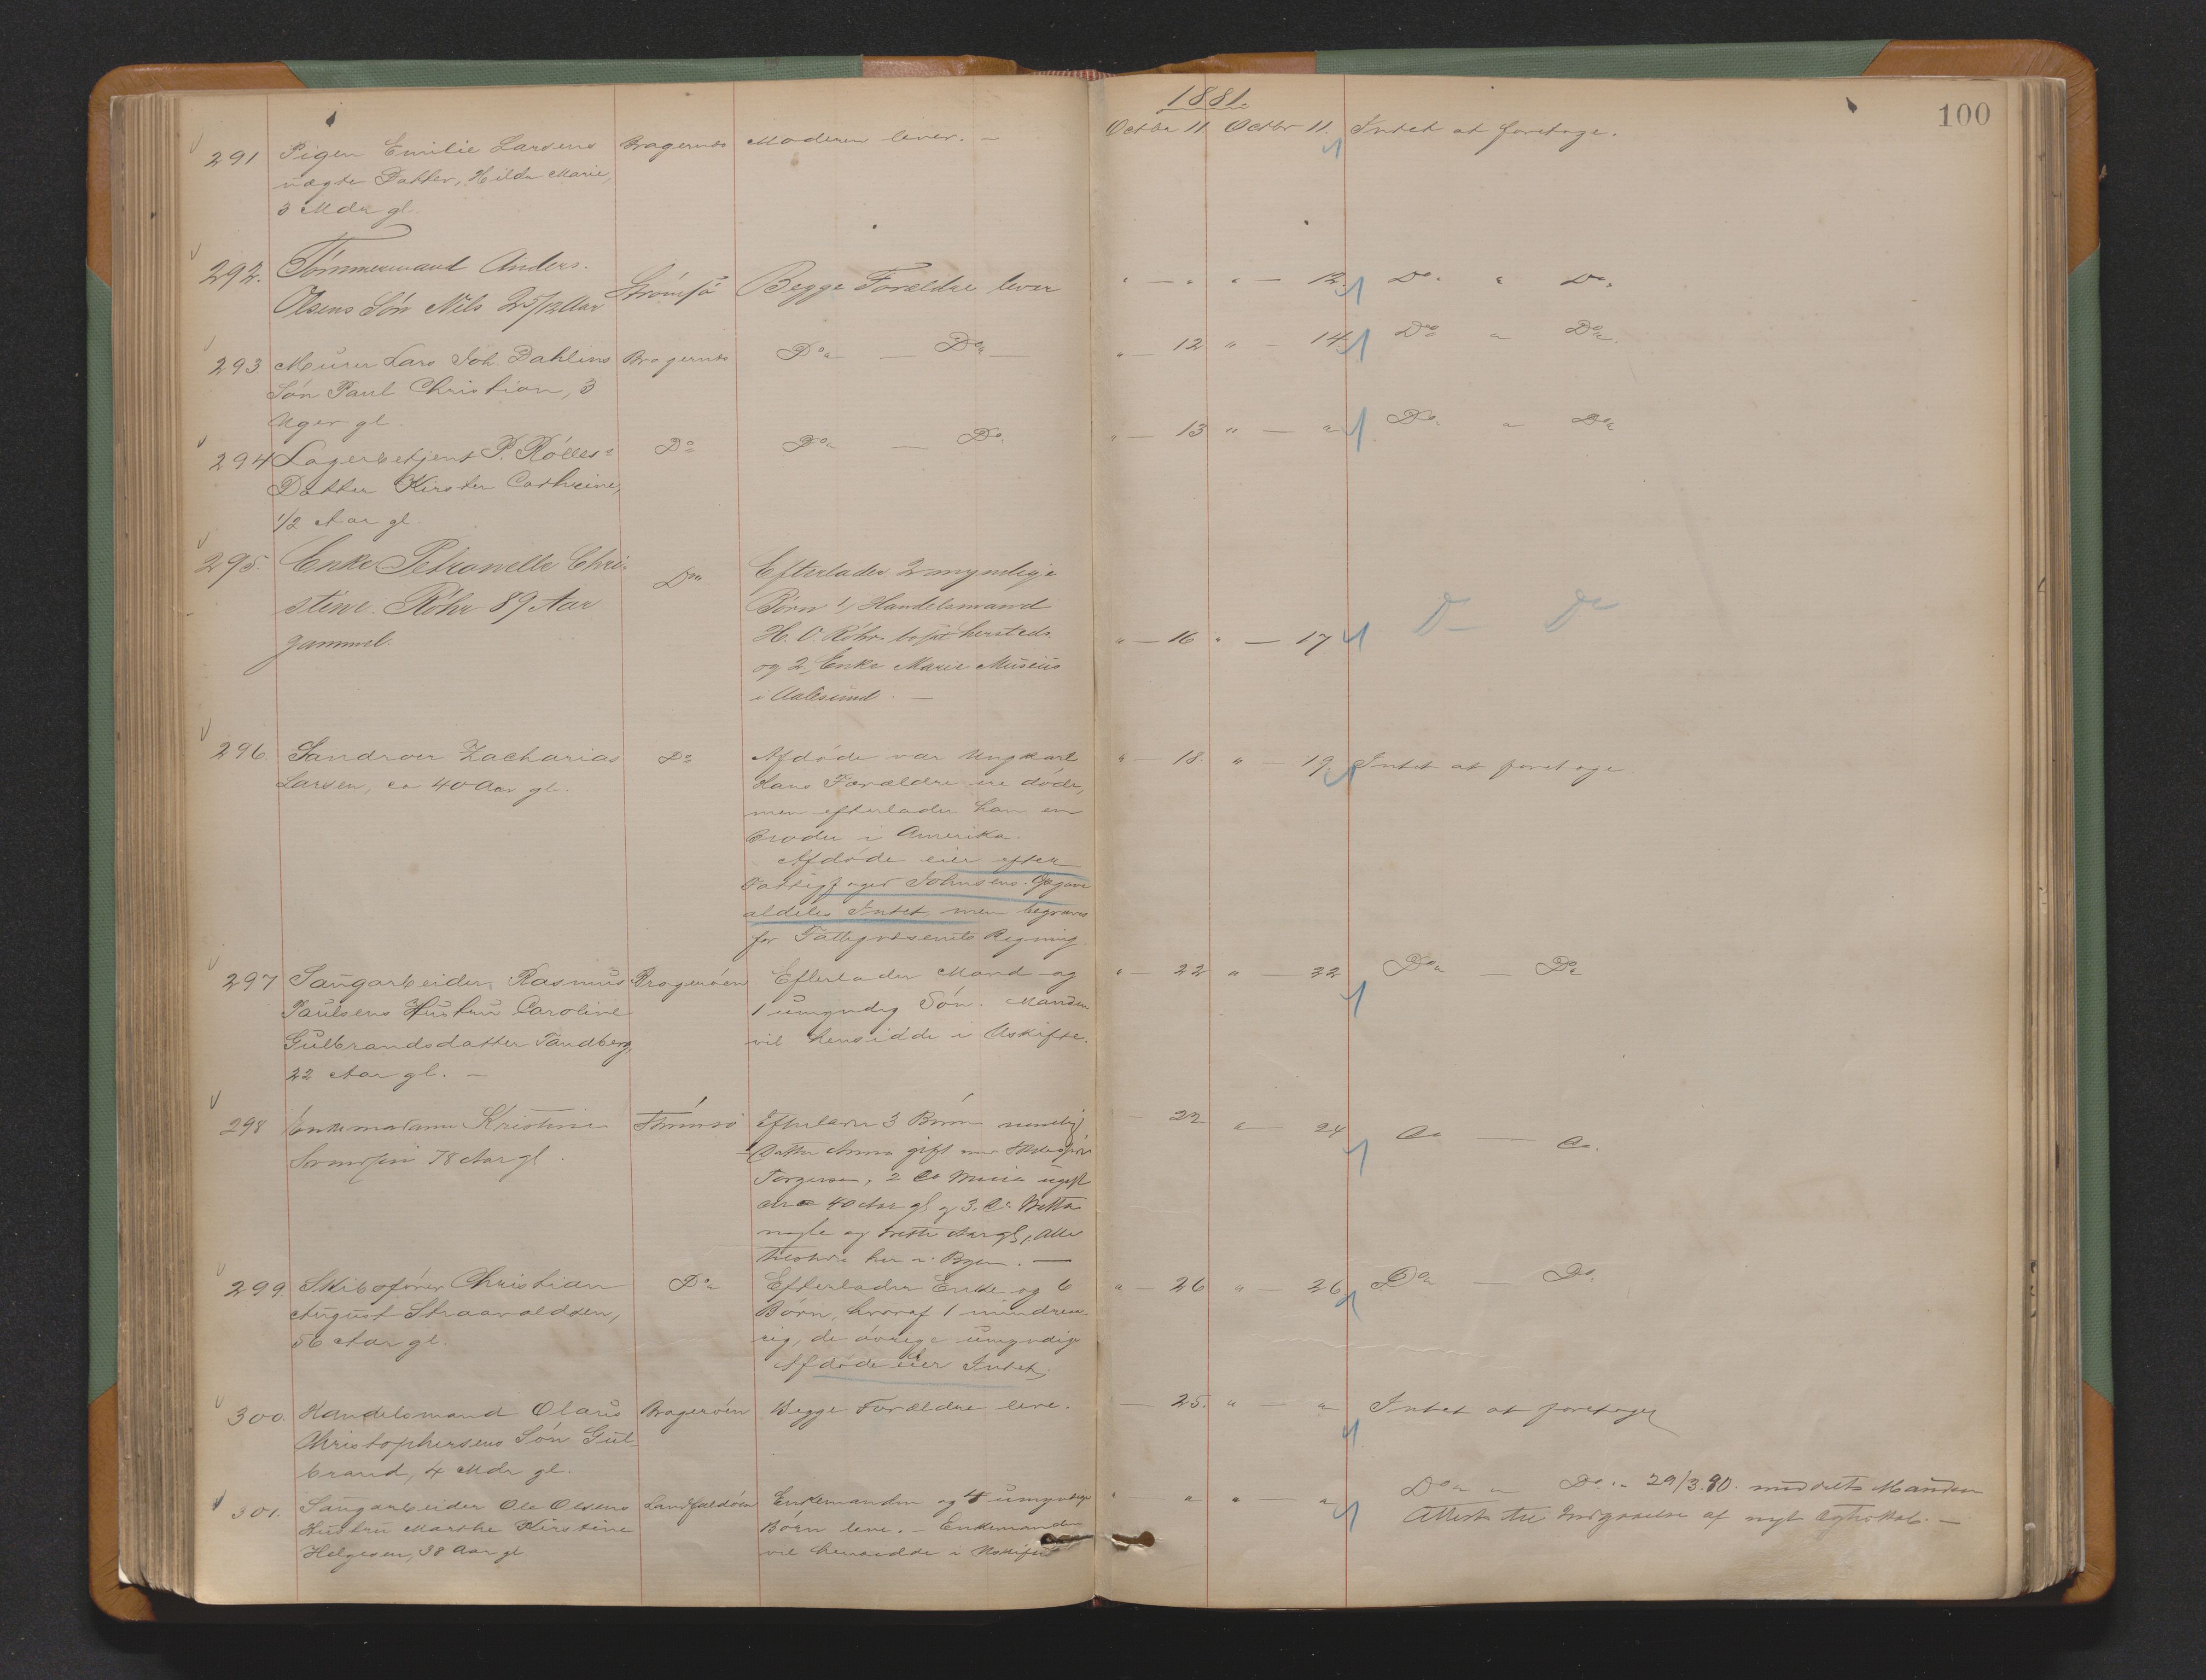 1881.
100
291 Pigen Emilie Larsens Bragernes Moderen lever. — Octbr 11. Octbr 11. Intet at foretage.
uægte Datter, Hilda Marie,
3 Mdr gl.
292. Tömmermand Anders
Olsens Sön Nils 2 5/12 Aar Strömsö Begge Forældre lever " — " " — 12. Do " Do
293. Murer Lars Joh. Dahlins Bragernes Do — Do " — 12 " — 14. Do " Do
Sön Paul Christian, 3
Uger gl.
294 Lagerbetjent P. Rölles Do Do — Do " — 13 " — " Do " Do
Datter Kirsten Cathrine,
1/2 Aar gl.
295. Enke Petronelle Chri-
stine Röhr 89 Aar
gammel.
Do
Efterlader 2 myndige
Börn 1, Handelsmand
H. O. Röhr hersteds
og 2, Enke Marie
i Aalesund. —
" — 16 " — 17 D — Do
296. Sandroer Zacharias
Larsen, ca 40 Aar gl.
Do
Afdöde var Ungkarl
Hans Forældre ere döde,
men efterlader han en
Broder i Amerika.
Afdöde eier efter
Fattigfoged Johnsens Opgave
aldeles Intet, men begraves
for Fattigvæsenets Regning.
" — 18. " — 19. Intet at foretage
297 Saugarbeider Rasmus
Paulsens Hustru Caroline
Gulbrandsdatter Tandberg,
22 Aar gl. —
Brageröen
Efterlader Mand og
1 umyndig Sön. Manden
vil hensidde i Uskifte.
" — 22 " — 22 Do — Do
298 Enkemadame Kristine
78 Aar gl.
Strömsö
Efterlader 3 Börn nemlig
1 Datter Anna gift med
Torgersen, 2 Do Maria ugift
40 Aar gl og 3. Do
nogle og tretti Aar gl, Alle
her i Byen. —
— 22 " — 24 Do — Do.
299 Skibsförer Christian
August Straavoldsen,
56 Aar gl.
Do
Efterlader Enke og 6
Börn, hvoraf 1 mindreaa-
rig, de övrige umyndige
Afdöde eier Intet.
" — 26 " — 26. Do — Do.
300. Handelsmand Olaus
Christophersens Sön Gul
brand, 4 Mdr gl.
Brageröen Begge Forældre leve.
— 25. " — " Intet at foretage
301. Saugarbeider Ole Olsens
Hustru Marthe Kirstine
Helgesen, 38 Aar gl
Landfaldöen
Enkemanden og 4 umyndige
Börn leve. — Enkemanden
vil hensidde i Uskifte
" " " — " Do " Do. 29/3.90. meddelt Manden
Attest til Indgaaelse af nyt Ægteskab. —